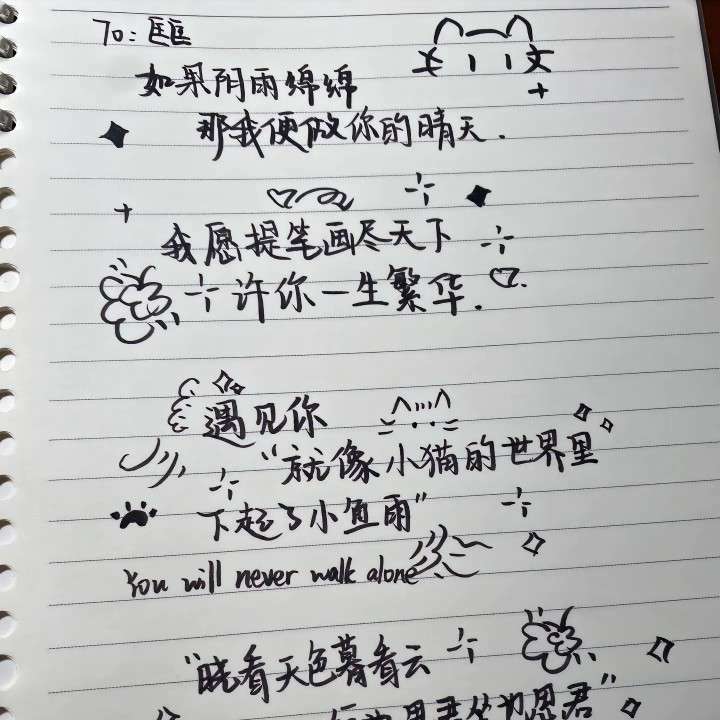 To: 匡匡
如果阴雨绵绵
那我便做你的晴天.
我愿提笔画尽天下
许你一生繁华.
遇见你
"就像小猫的世界里
下起了小鱼雨"
You will never walk alone
"晓看天色暮看云
行也思君坐也思君"